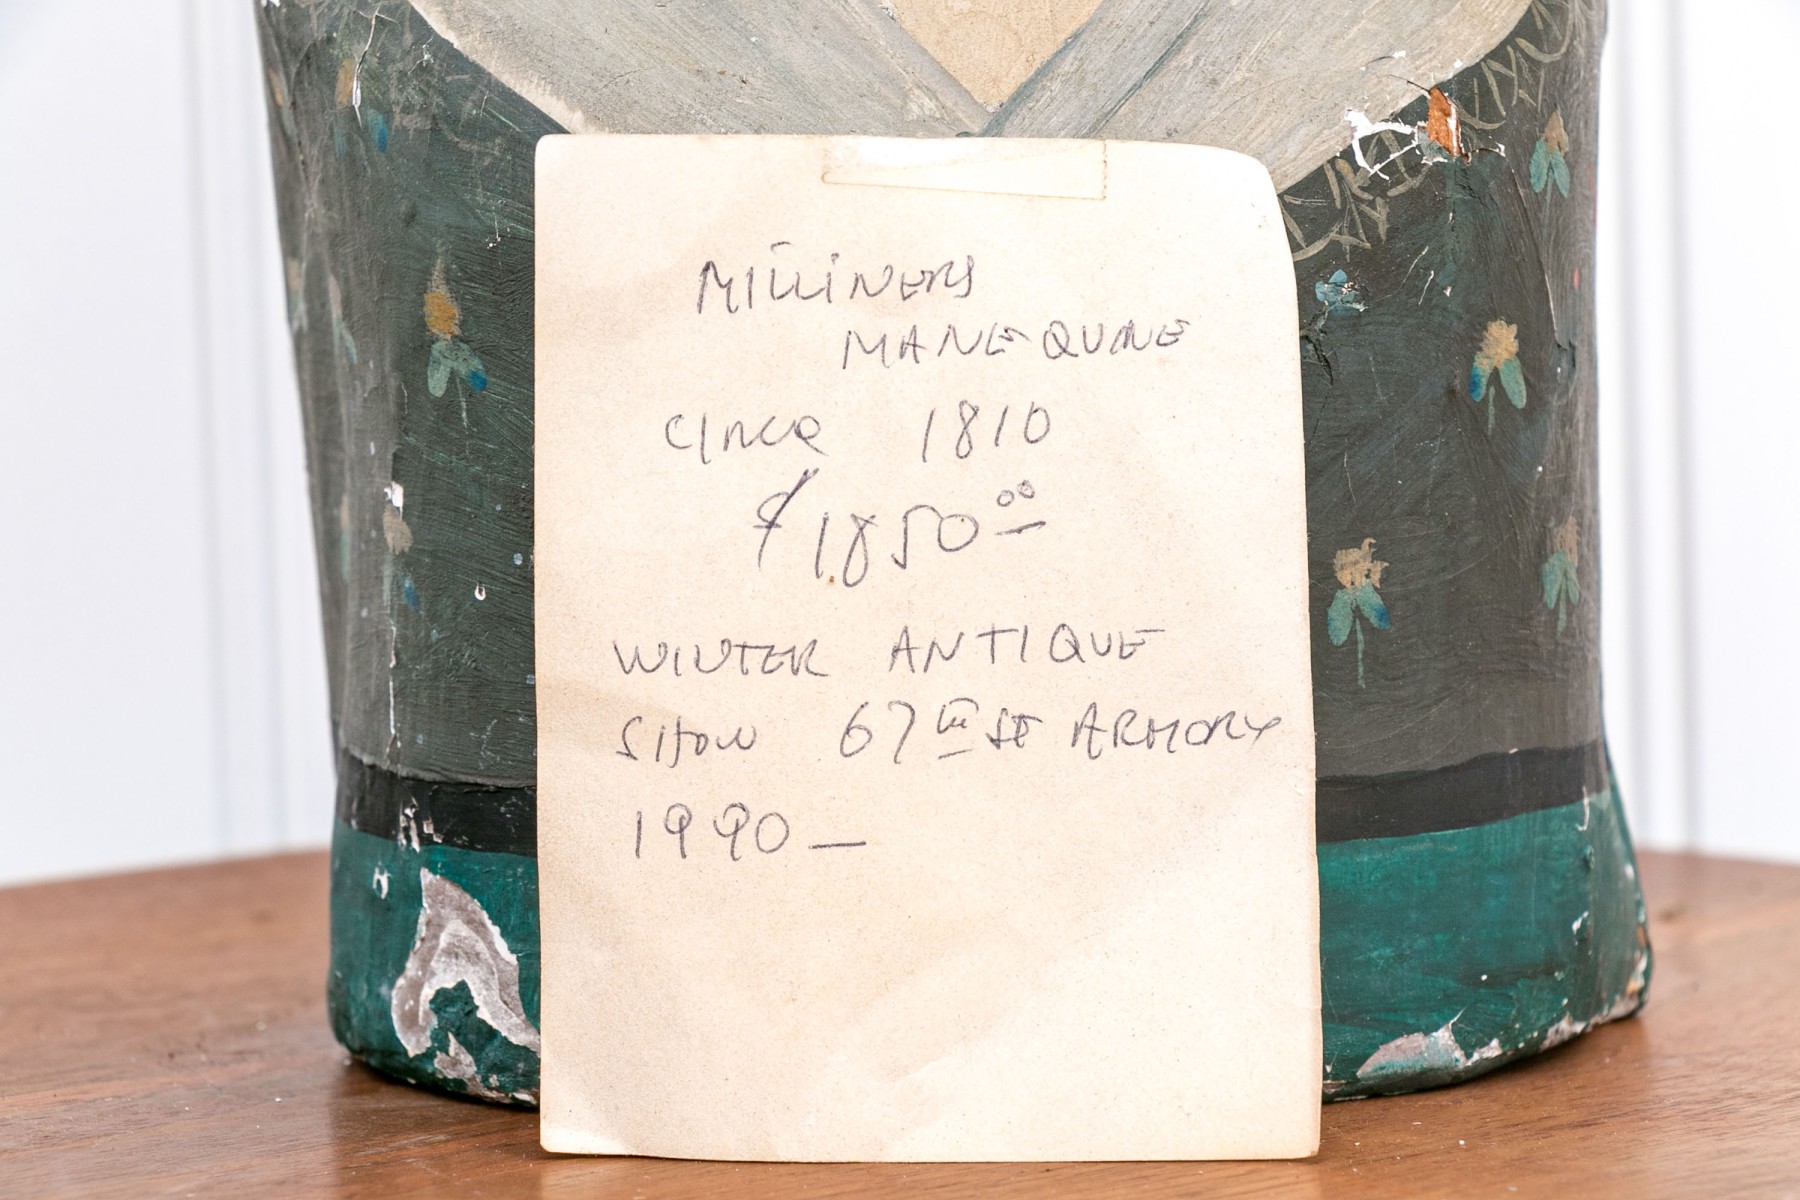 MILLINERS
MANEQUINE
CIRCA 1810
$1850.00
WINTER ANTIQUE
SHOW 67th St ARMORY
1990—